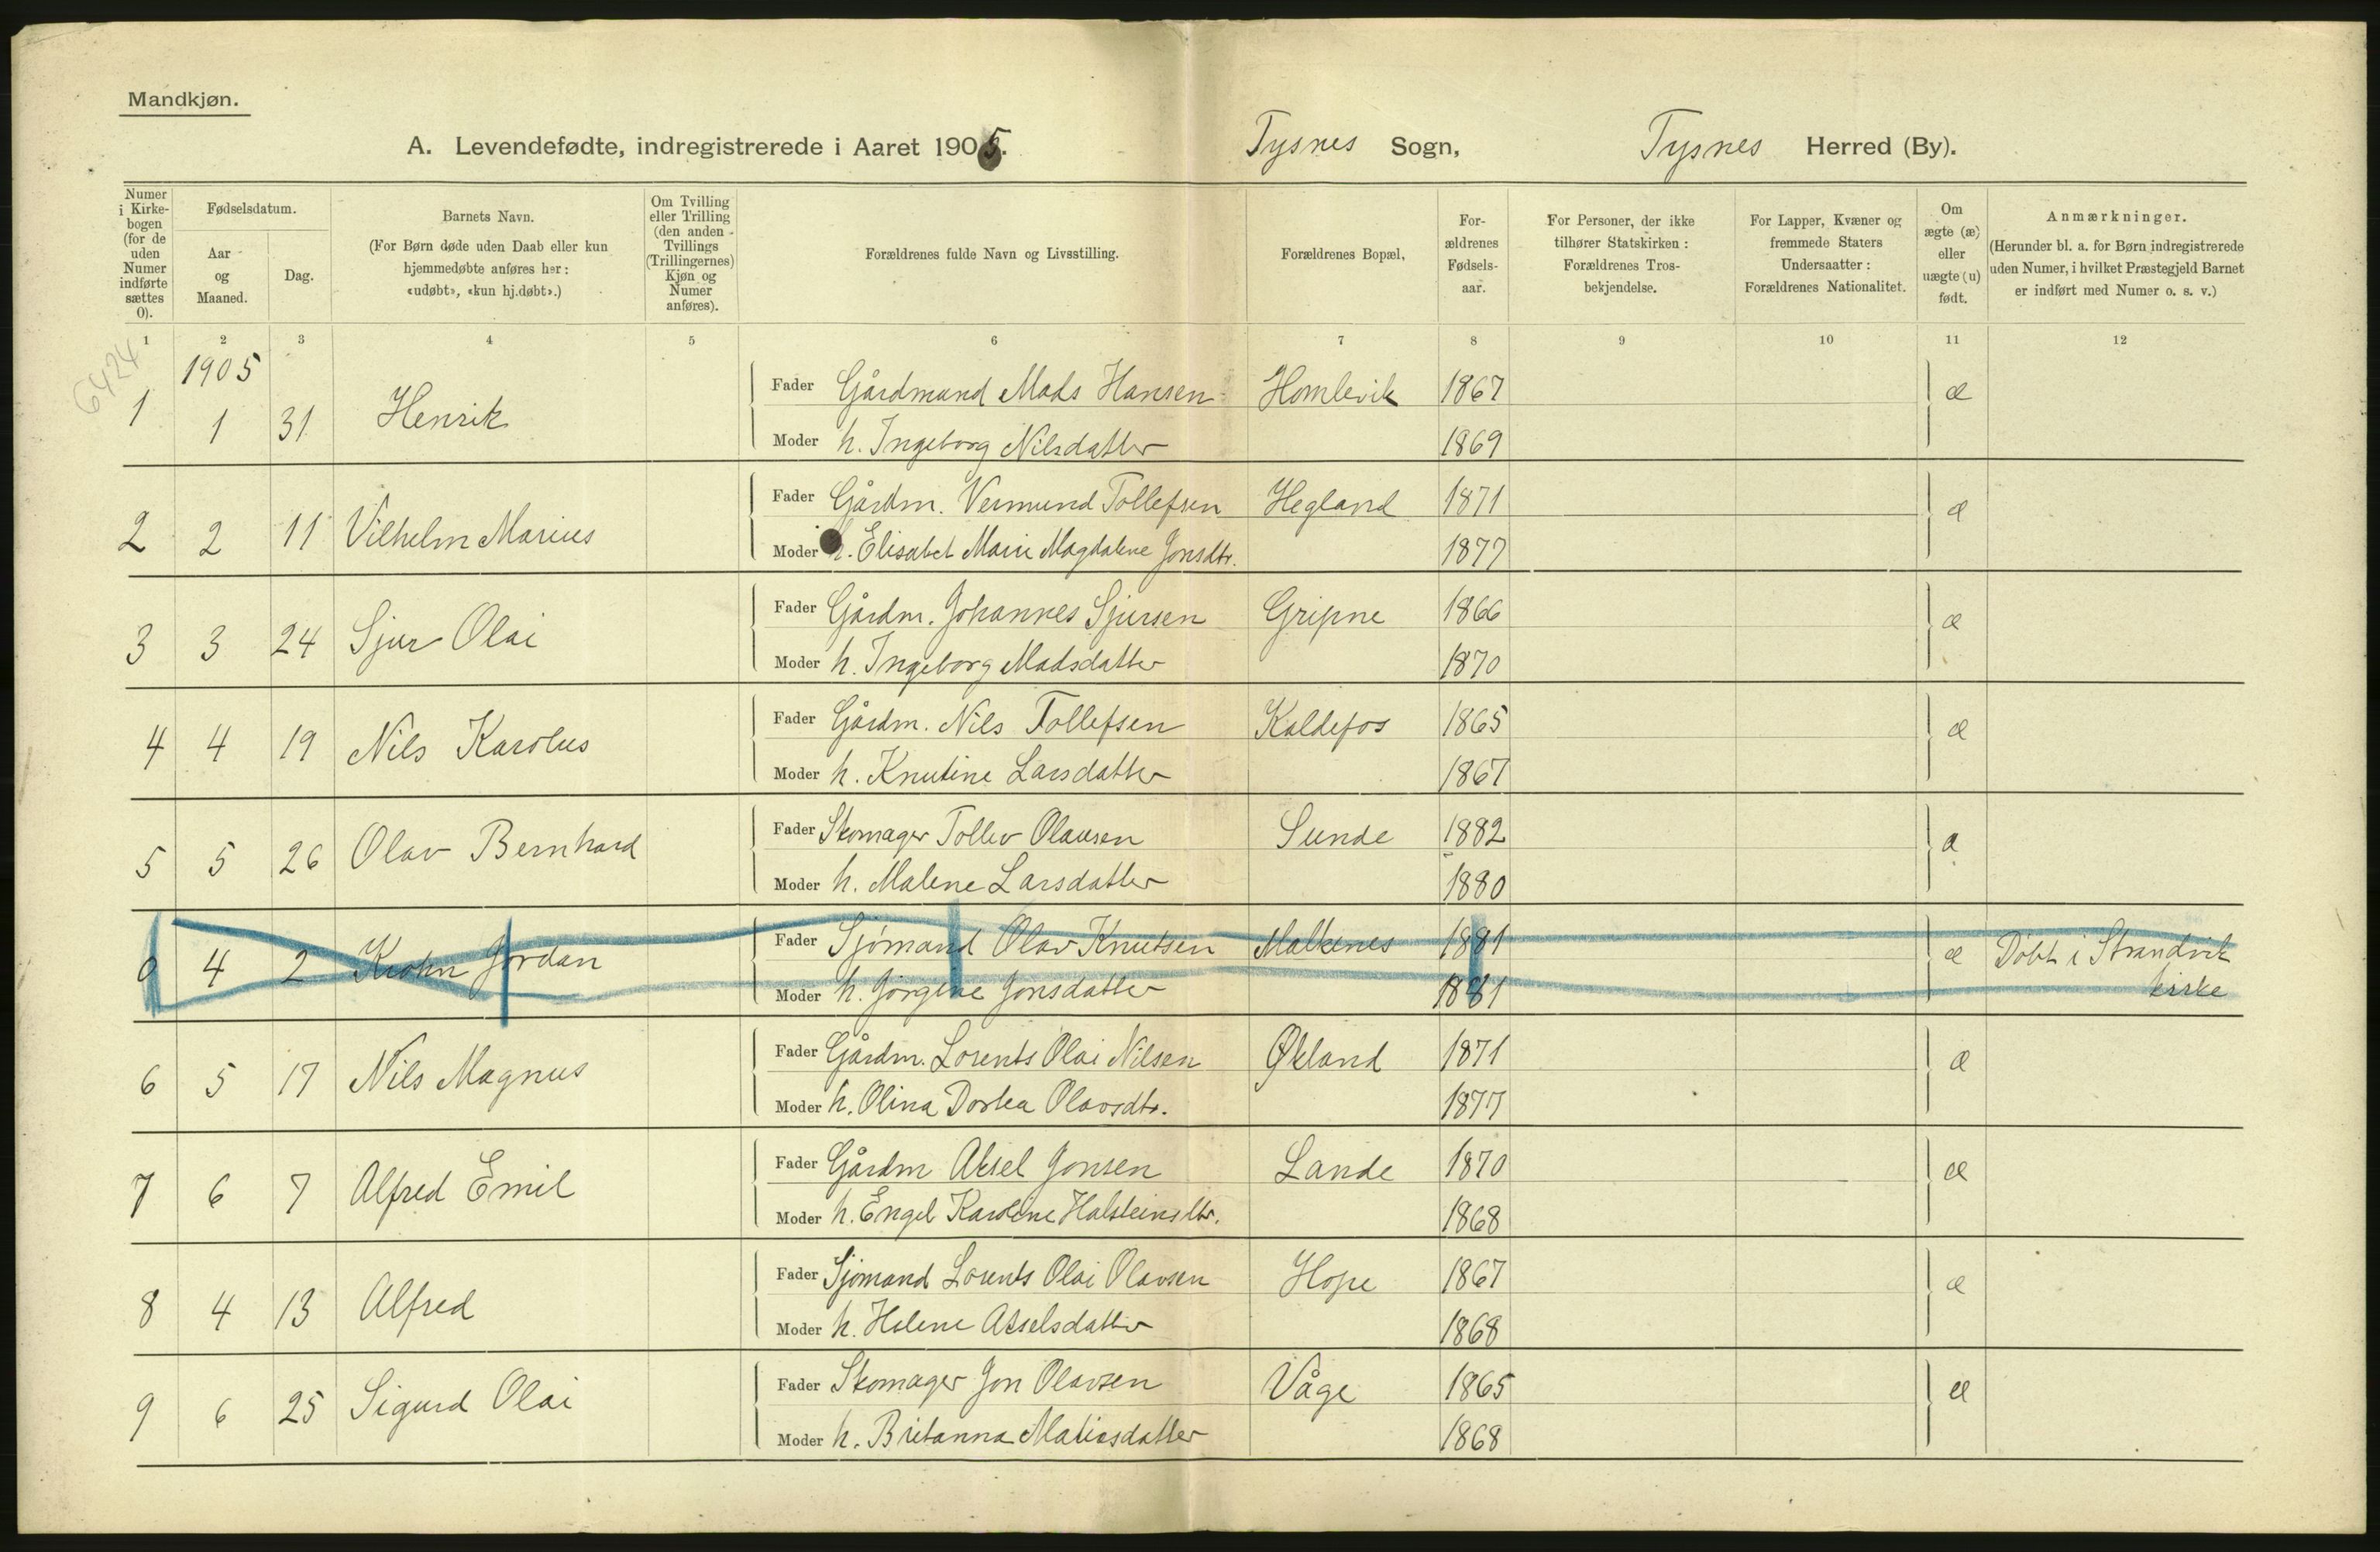 Mandkjøn.
A. Levendefødte, indregistrerede i Aaret 1905. Tysnes Sogn, Tysnes Herred (By).
Numer i Kirke-bogen (for de uden Numer indførte sættes 0). Fødselsdatum. Aar og Maaned. Dag. Barnets Navn. (For Børn døde uden Daab eller kun hjemmedøbte anføres her: «udøbt», «kun hj.døbt».) Om Tvilling eller Trilling (den anden Tvillings (Trillingernes) Kjøn og Numer anføres). Forældrenes fulde Navn og Livsstilling. Forældrenes Bopæl, For-ældrenes Fødsels-aar. For Personer, der ikke tilhører Statskirken: Forældrenes Tros-bekjendelse. For Lapper, Kvæner og fremmede Staters Undersaatter: Forældrenes Nationalitet. Om ægte (æ) eller uægte (u) født. Anmærkninger. (Herunder bl. a. for Børn indregistrerede uden Numer, i hvilket Præstegjeld Barnet er indført med Numer o. s. v.)
1 2 3 4 5 6 7 8 9 10 11 12
6424
1905
1 1 31 Henrik Fader Gårdmand Mads Hansen Homlevik 1867 æ
Moder h. Ingeborg Nilsdatter 1869
2 2 11 Vilhelm Marius Fader Gårdm. Vermund Tollefsen Hegland 1871 æ
Moder h. Elisabet Marie Magdalene Jonsdtr. 1877
3 3 24 Sjur Olai Fader Gårdm. Johannes Sjursen Gripne 1866 æ
Moder h. Ingeborg Madsdatter 1870
4 4 19 Nils Karolus Fader Gårdm. Nils Tollefsen Kaldefos 1865 æ
Moder h. Knutine Larsdatter 1867
5 5 26 Olav Bernhard Fader Skomager Tollev Olausen Sunde 1882 æ
Moder h. Malene Larsdatter 1880
0 4 2 Krohn Jordan Fader Sjømand Olav Knutsen Malkenes 1881 æ Døbt i Strandvik
Moder h. Jørgine Jonsdatter 1881 kirke
6 5 17 Nils Magnus Fader Gårdm. Lorents Olai Nilsen Økland 1871 æ
Moder h. Olina Dortea Olavsdtr. 1877
7 6 7 Alfred Emil Fader Gårdm Aksel Jonsen Lande 1870 æ
Moder h. Engel Karoline Halsteinsdtr. 1868
8 4 13 Alfred Fader Sjømand Lorents Olai Olavsen Hope 1867 æ
Moder h. Helene Akselsdatter 1868
9 6 25 Sigurd Olai Fader Skomager Jon Olavsen Våge 1865 æ
Moder h. Britanna Matiasdatter 1868